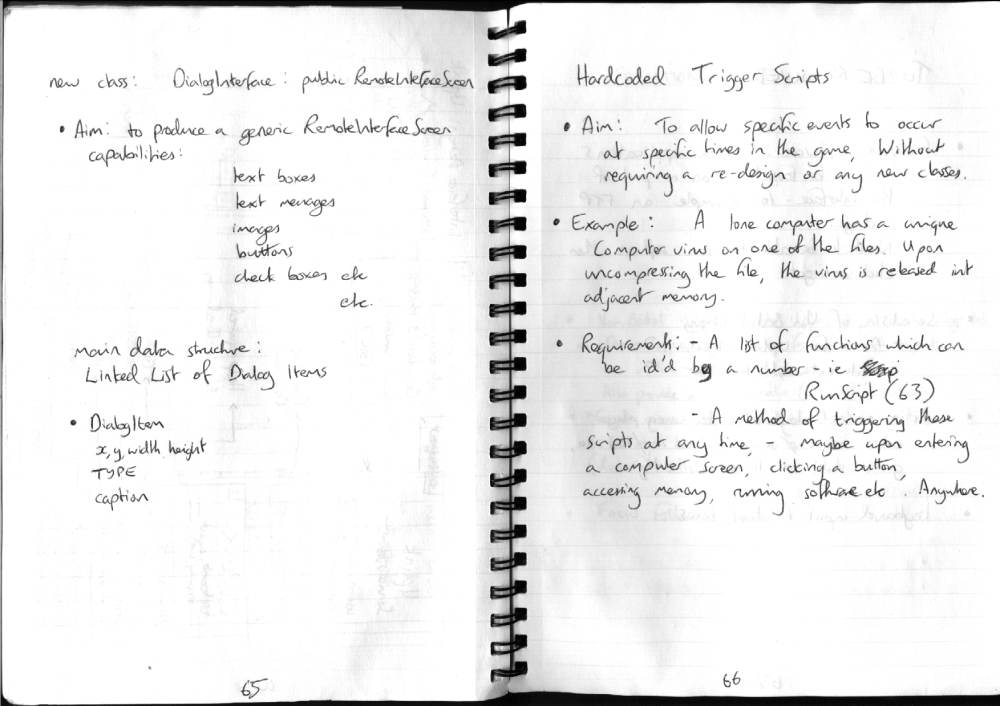 new class: DialogInterface : public RemoteInterfaceScreen
• Aim: to produce a generic RemoteInterfaceScreen
capabilities:
text boxes
text messages
images
buttons
check boxes etc
etc.
main data structure:
Linked List of Dialog Items
• DialogItem
x, y, width, height
TYPE
caption
65
Hardcoded Trigger Scripts
• Aim: To allow specific events to occur
at specific times in the game, Without
requiring a re-design or any new classes.
• Example: A lone computer has a unique
Computer virus on one of the files. Upon
uncompressing the file, the virus is released int
adjacent memory.
• Requirements: - A list of functions which can
be id'd by a number - ie
RunScript(63)
- A method of triggering these
scripts at any time - maybe upon entering
a computer screen, clicking a button,
accessing memory, running software etc. Anywhere.
66